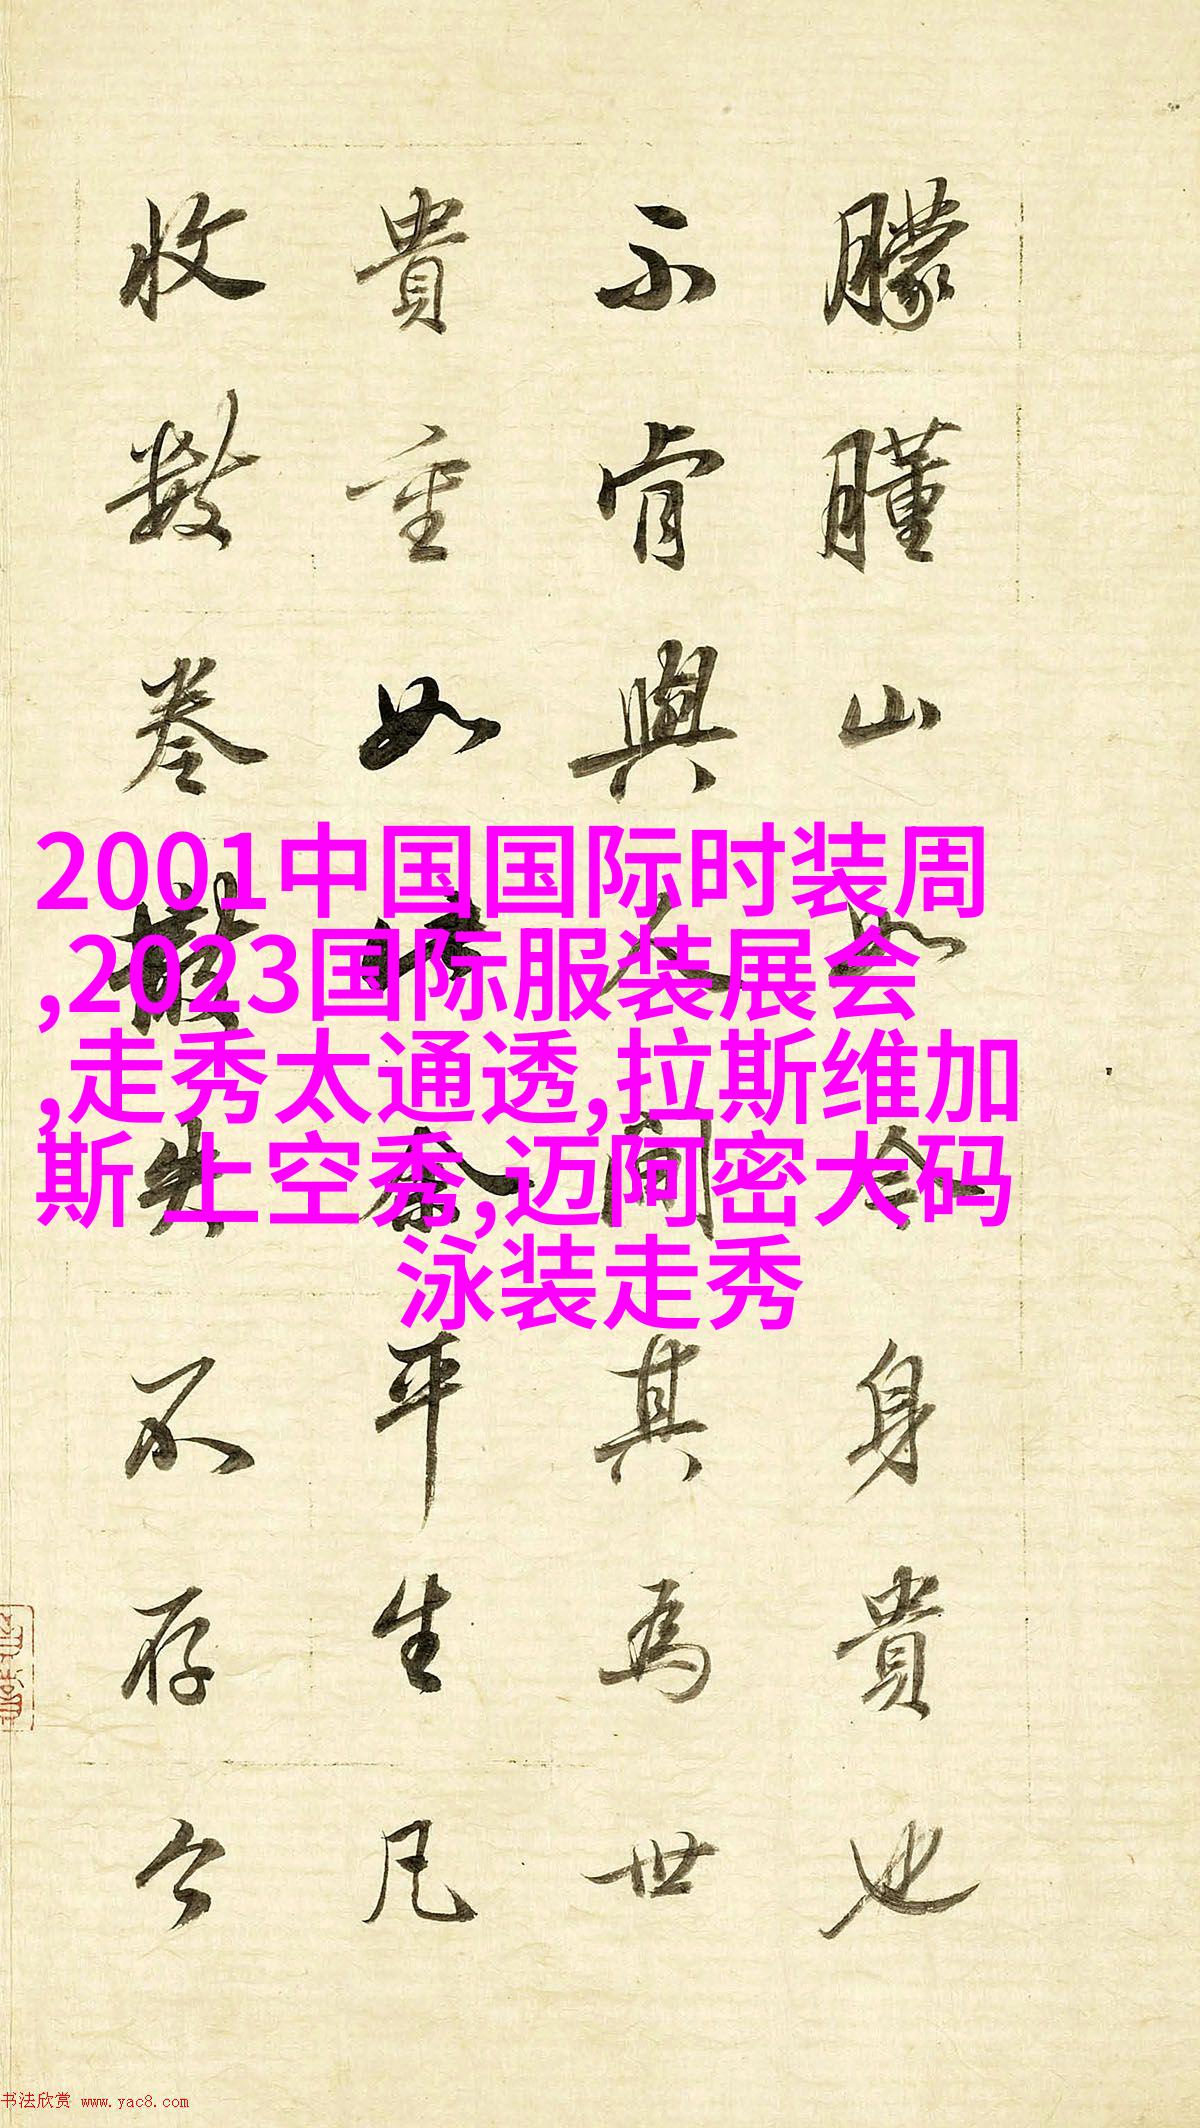 朦山如令身貴也
不肯與人間其為世
貴重如余平生凡
收數卷散失不存今
2001中国国际时装周
,2023国际服装展会
,走秀太通透,拉斯维加
斯 上空秀,迈阿密大码
泳装走秀
书法欣赏 www.yac8.com